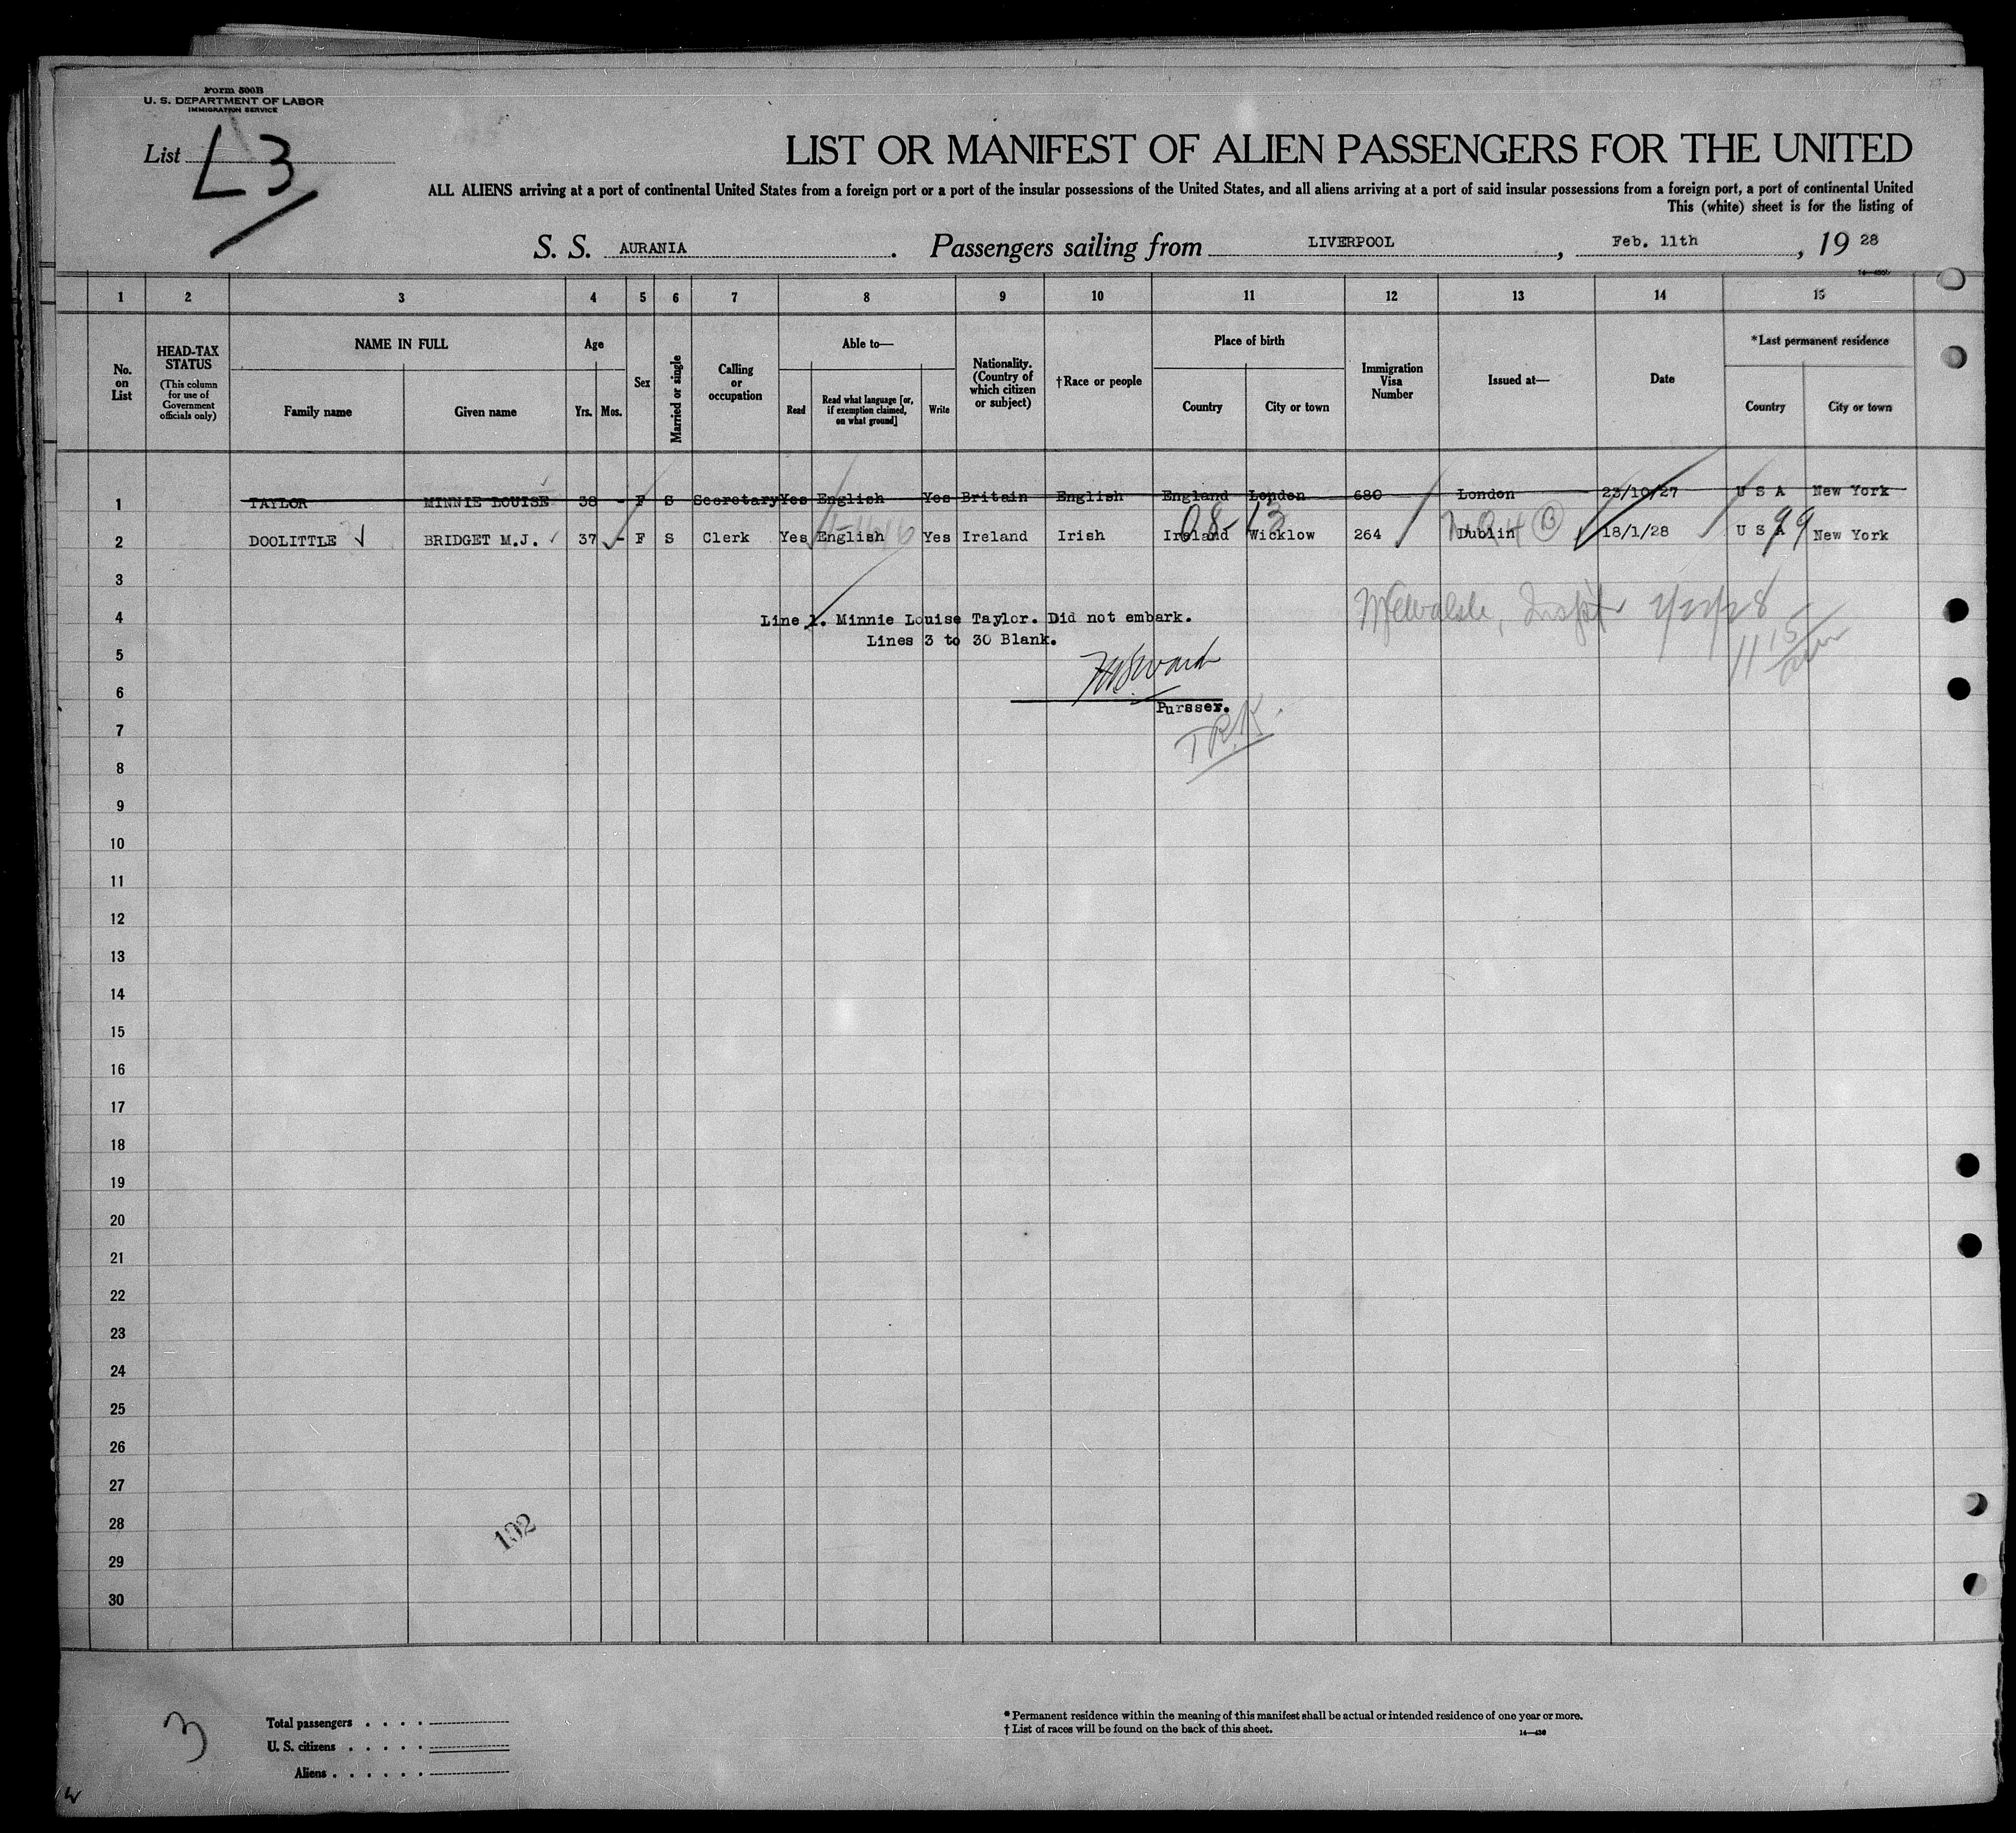 Form 500B
U. S. DEPARTMENT OF LABOR
IMMIGRATION SERVICE
List L3
LIST OR MANIFEST OF ALIEN PASSENGERS FOR THE UNITED
ALL ALIENS arriving at a port of continental United States from a foreign port or a port of the insular possessions of the United States, and all aliens arriving at a port of said insular possessions from a foreign port, a port of continental United
This (white) sheet is for the listing of
S. S. AURANIA. Passengers sailing from LIVERPOOL, Feb. 11th, 19 28
1 2 3 4 5 6 7 8 9 10 11 12 13 14 15
No. on List
HEAD-TAX STATUS (This column for use of Government officials only)
NAME IN FULL
Family name Given name
Age
Yrs. Mos.
Sex
Married or single
Calling or occupation
Able to—
Read Read what language [or, if exemption claimed, on what ground] Write
Nationality. (Country of which citizen or subject)
†Race or people
Place of birth
Country City or town
Immigration Visa Number
Issued at—
Date
*Last permanent residence
Country City or town
1 TAYLOR MINNIE LOUISE 38 - F S Secretary Yes English Yes Britain English England London 680 London 23/10/27 U S A New York
08-13 99
2 DOOLITTLE BRIDGET M.J. 37 - F S Clerk Yes English Yes Ireland Irish Ireland Wicklow 264 Dublin 18/1/28 U S A New York
3
4 Line 1. Minnie Louise Taylor. Did not embark.
Lines 3 to 30 Blank.
5
6
Pursser.
7
8
9
10
11
12
13
14
15
16
17
18
19
20
21
22
23
24
25
26
27
28
102
29
30
3
Total passengers
U. S. citizens
Aliens
* Permanent residence within the meaning of this manifest shall be actual or intended residence of one year or more.
† List of races will be found on the back of this sheet.